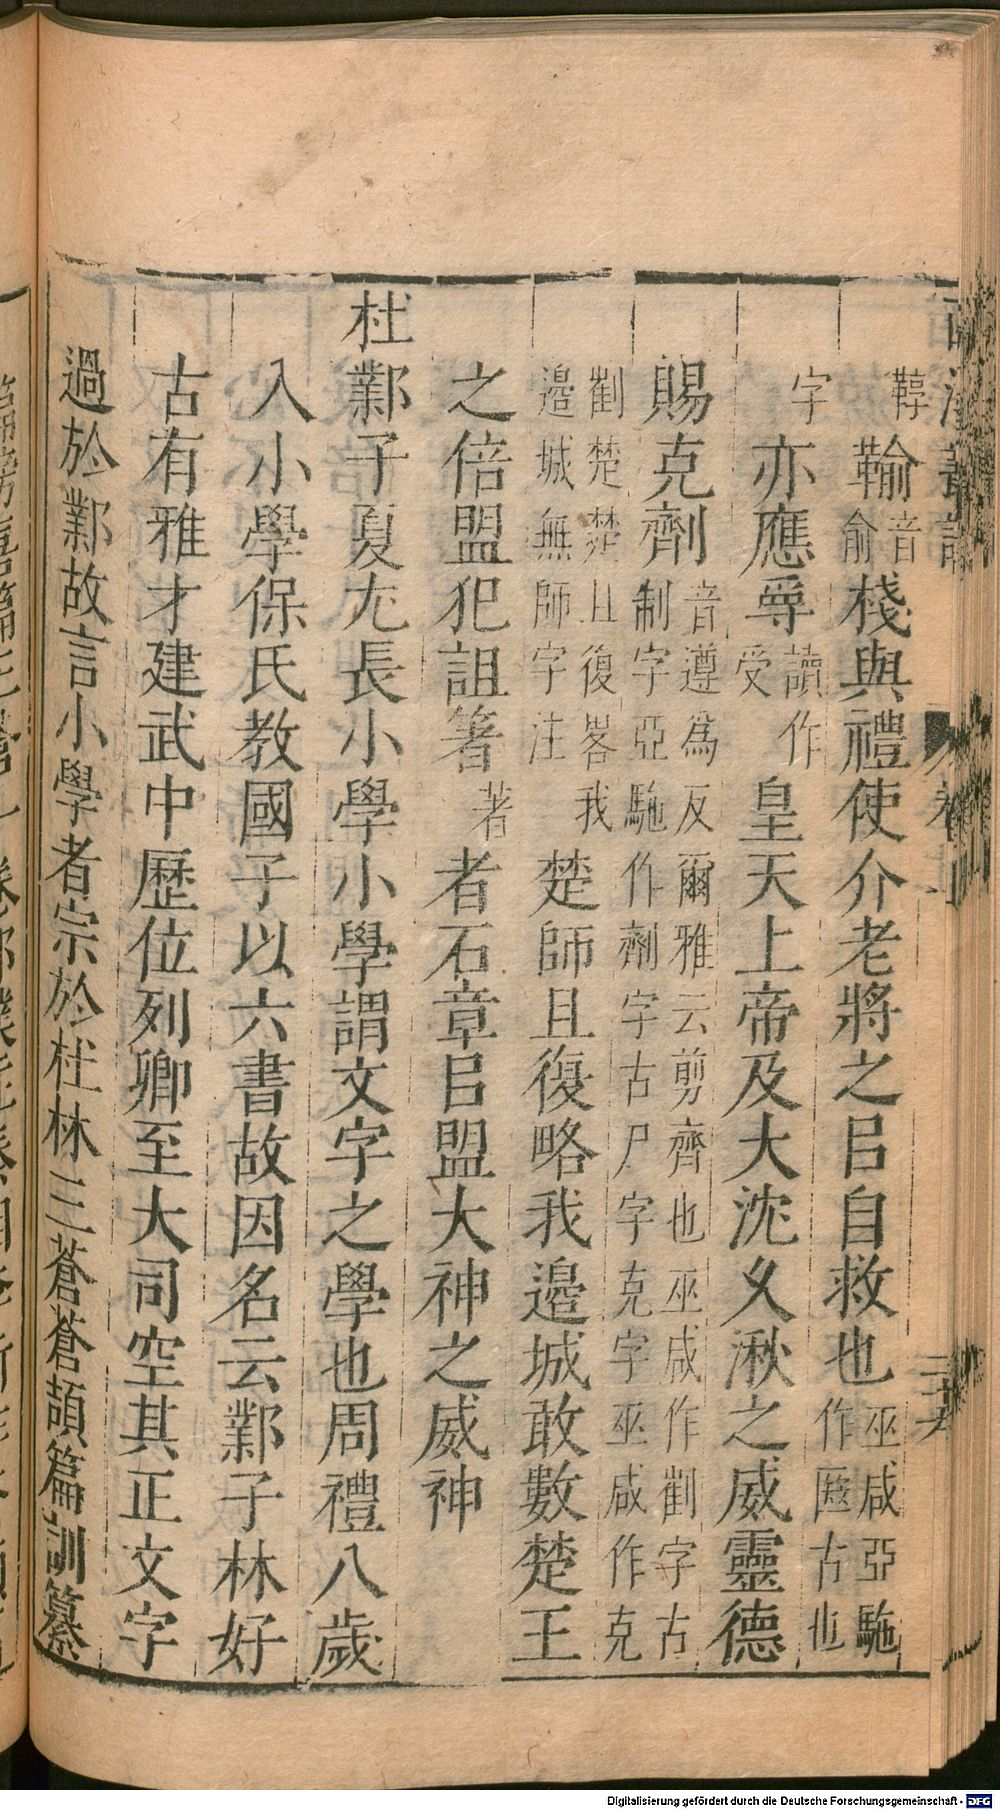 棧與禮使介老將之㠯自救也巫咸亞駞作𠥓古也
字亦應讀作受皇天上帝及大沈久湫之威靈德
賜克劑音遵為反爾雅云剪齊也巫咸作劐字古制字亞駞作劑字古尸字克字巫咸作克
劐楚楚且復畧我邊城無師字注楚師且復略我邊城敢數楚王
之倍盟犯詛箸著者石章㠯盟大神之威神
杜鄴子夏尤長小學小學謂文字之學也周禮八歲
入小學保氏教國子以六書故因名云鄴子林好
古有雅才建武中歷位列卿至大司空其正文字
過於鄴故言小學者宗於杜林三蒼蒼頡篇訓纂
Digitalisierung gefördert durch die Deutsche Forschungsgemeinschaft - DFG